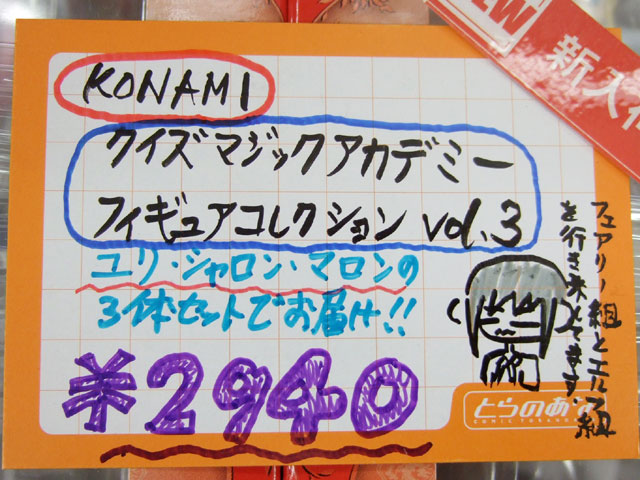 KONAMI
クイズマジックアカデミー
フィギュアコレクション vol.3
ユリ・シャロン・マロンの
3体セットでお届け!!
¥2940
フェアリー組とエルフ組
を行き来してます。
とらのあな
新入荷